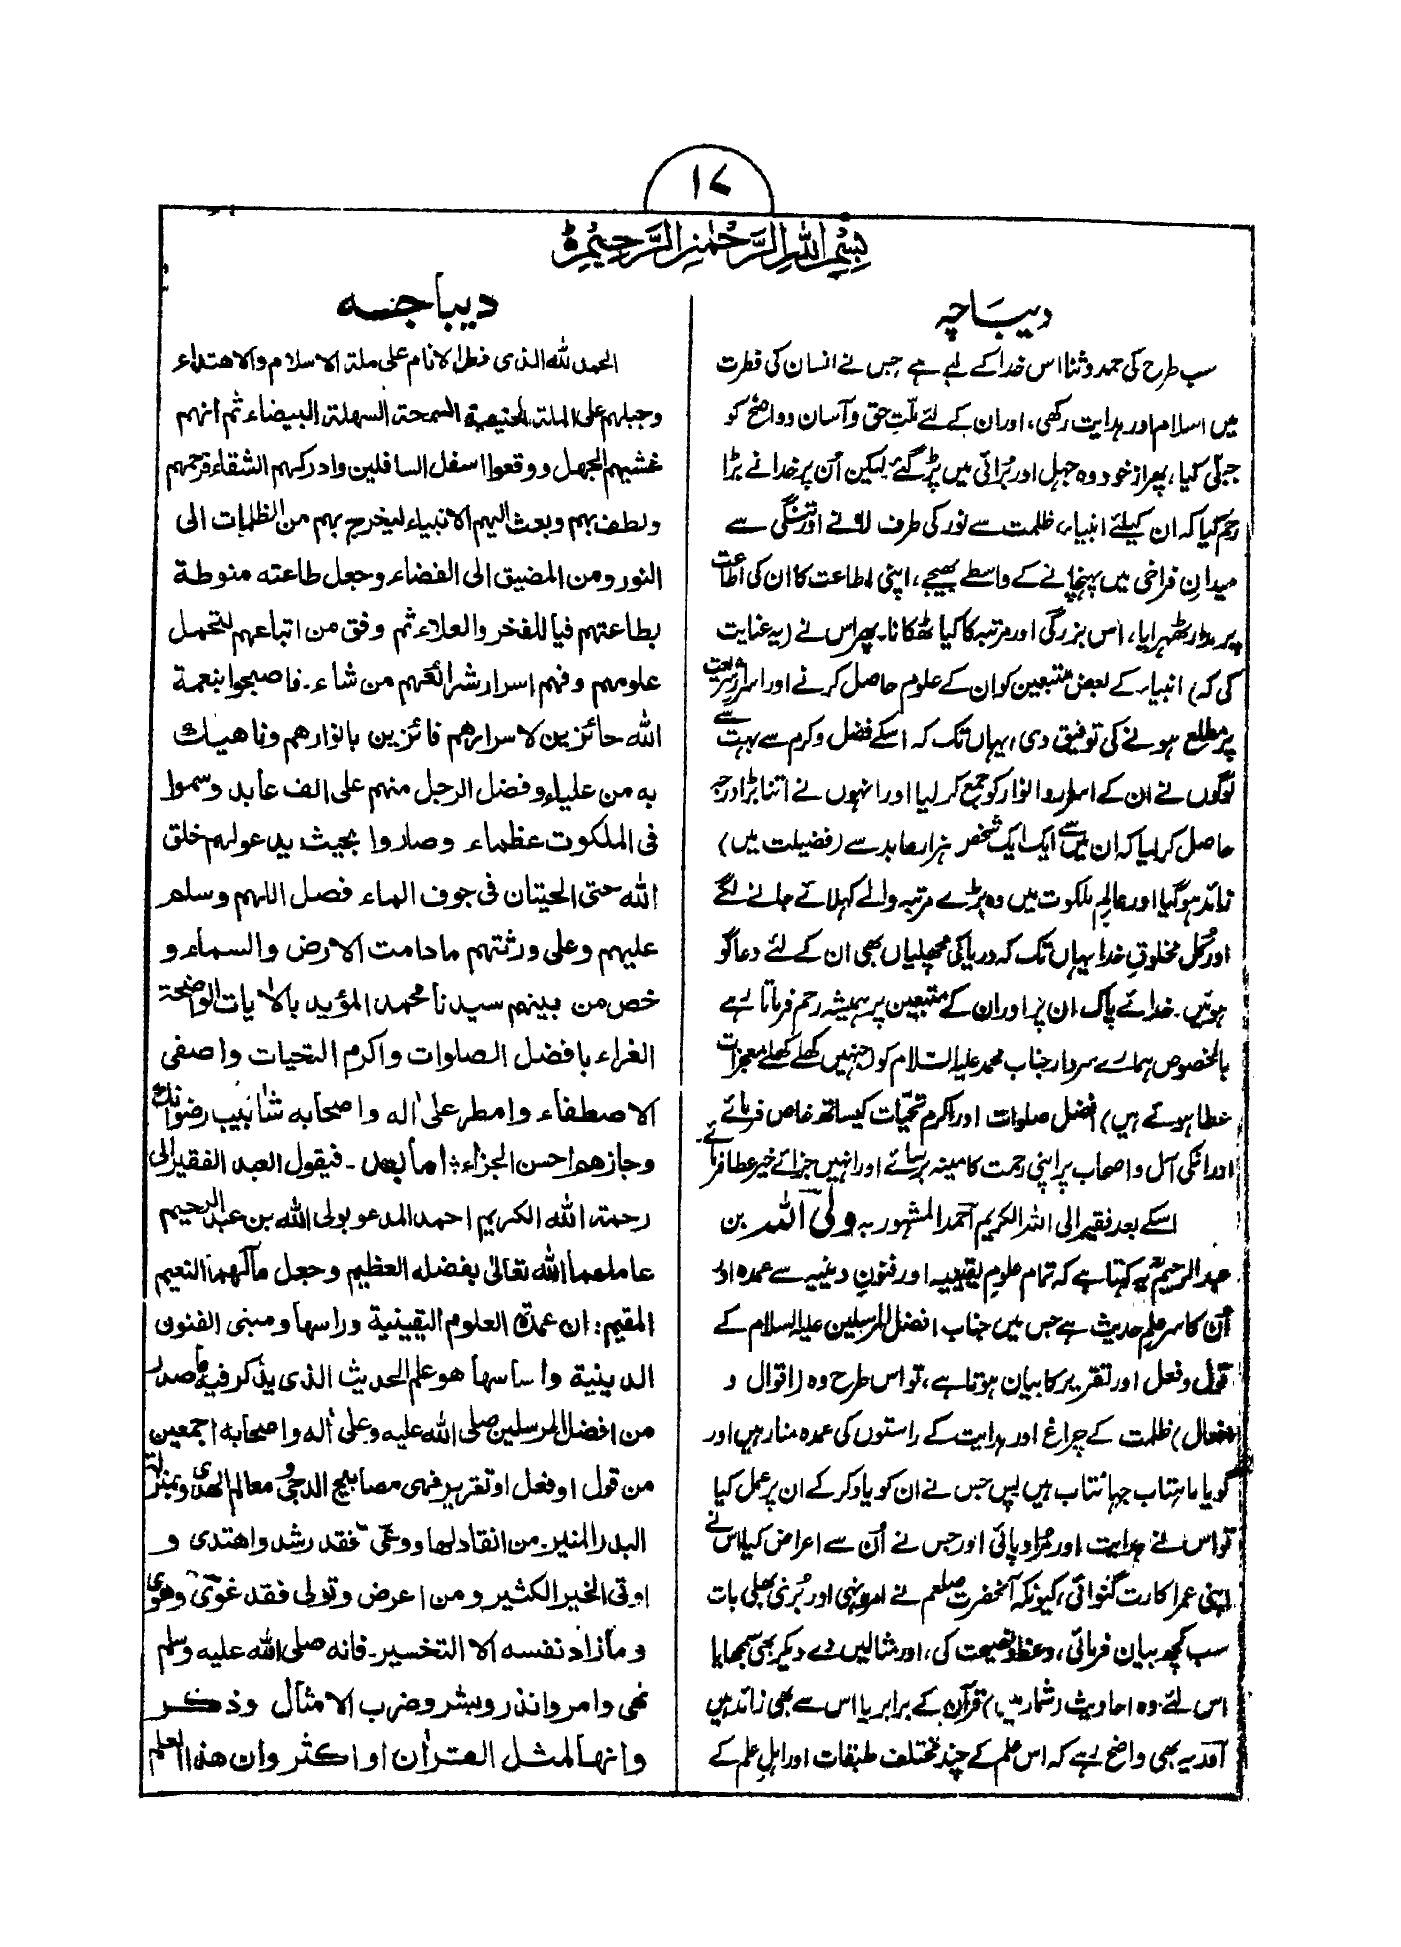 ۱۷
بِسْمِ اللهِ الرَّحْمٰنِ الرَّحِيْمِ
دیباچہ
سب طرح کی حمد وثنا اس خدا کے لیے ہے جس نے انسان کی فطرت
میں اسلام اور ہدایت رکھی، اور ان کے لئے ملتِ حق وآسان و واضح کو
جبلّی کیا، پھر از خود وہ جہل اور بُرائی میں پڑ گئے لیکن اُن پر خدا نے بڑا
رحم کیا کہ ان کیلئے انبیاء، ظلمت سے نور کی طرف لانے اور تنگی سے
میدانِ فراخی میں پہنچانے کے واسطے بھیجے، اپنی اطاعت کا ان کی اطاعت
پر مدار ٹھہرایا، اس بزرگی اور مرتبہ کا کیا ٹھکانا۔ پھر اس نے (یہ عنایت
کی کہ) انبیاء کے بعض متبعین کو ان کے علوم حاصل کرنے اور اسرار شریعت
پر مطلع ہونے کی توفیق دی، یہاں تک کہ اسکے فضل وکرم سے بہت سے
لوگوں نے ان کے اسرار و انوار کو جمع کر لیا اور انہوں نے اتنا بڑا درجہ
حاصل کر لیا کہ ان میں سے ایک ایک شخص ہزار عابد سے (فضیلت میں)
زائد ہو گیا اور عالمِ ملکوت میں وہ بڑے مرتبہ والے کہلائے جانے لگے
اور کُل مخلوقِ خدا یہاں تک کہ دریا کی مچھلیاں بھی ان کے لئے دعا گو
ہوئیں۔ خدائے پاک ان پر اور ان کے متبعین پر ہمیشہ رحم فرماتا رہے
بالخصوص ہمارے سردار جناب محمد علیہ السلام کو (جنہیں کھلے کھلے معجزات
عطا ہوئے ہیں) افضل صلوات اور اکرم تحیّات کیساتھ خاص فرمائے
اور انکی آل و اصحاب پر اپنی رحمت کا مینہ برسائے اور انہیں جزائے خیر عطا فرمائے۔
اسکے بعد فقیر الی اللہ الکریم احمد المشہور بہ ولی اللہ بن
عبدالرحیم یہ کہتا ہے کہ تمام علومِ یقینیہ اور فنونِ دینیہ سے عمدہ اور
اُن کا سر علمِ حدیث ہے جس میں جناب افضل المرسلین علیہ السلام کے
قول وفعل اور تقریر کا بیان ہوتا ہے، تو اس طرح وہ (اقوال و
افعال) ظلمت کے چراغ اور ہدایت کے راستوں کی عمدہ منار ہیں اور
گویا ماہتاب جہانتاب ہیں پس جس نے ان کو یاد کر کے ان پر عمل کیا
تو اس نے ہدایت اور مُراد پائی اور جس نے اُن سے اعراض کیا اس نے
اپنی عمر اکارت گنوائی، کیونکہ آنحضرت صلعم نے امر ونہی اور بُرئی بھلی بات
سب کچھ بیان فرمائی، وعظ ونصیحت کی، اور مثالیں دے دیکر بھی سمجھایا
اس لئے وہ احادیث (شمار میں) قرآن کے برابر یا اس سے بھی زائد ہیں
اور یہ بھی واضح رہے کہ اس علم کے چند مختلف طبقات اور اہلِ علم کے
دیباجه
الحمد لله الذی فطر الانام علی ملة الاسلام والاهتداء
وجبلهم علی الملة الحنيفية السمحة السهلة البيضاء ثم انهم
غشيهم الجهل ووقعوا اسفل السافلين وادركهم الشقاء فرحمهم
ولطف بهم وبعث اليهم الانبياء ليخرج بهم من الظلمات الی
النور ومن المضيق الی الفضاء وجعل طاعته منوطة
بطاعتهم فيا للفخر والعلاء ثم وفق من اتباعهم لتحمل
علومهم وفهم اسرار شرائعهم من شاء۔ فاصبحوا بنعمة
الله حائزين لاسرارهم فائزين بانوارهم وناهيك
به من علياء وفضل الرجل منهم علی الف عابد وسموا
فی الملكوت عظماء وصاروا بحيث يدعو لهم خلق
الله حتی الحيتان فی جوف الماء فصل اللهم وسلم
عليهم وعلی ورثتهم ما دامت الارض والسماء و
خص من بينهم سيدنا محمد المؤيد بالايات الواضحة
الغراء بافضل الصلوات واكرم التحيات واصفی
الاصطفاء وامطر علی اٰله واصحابه شاٰبيب رضوانك
وجازهم احسن الجزاء: اما بعد۔ فيقول العبد الفقير الی
رحمة الله الكريم احمد المدعو بولی الله بن عبد الرحيم
عاملهما الله تعالیٰ بفضله العظيم وجعل مآلهما النعيم
المقيم: ان عمدة العلوم اليقينية وراسها ومبنی الفنون
الدينية واساسها هو علم الحديث الذی يذكر فيه ما صدر
من افضل المرسلين صلی الله عليه وعلیٰ اٰله واصحابه اجمعين
من قول او فعل او تقرير فهی مصابيح الدجیٰ و معالم الهدی وبمنزلة
البدر المنير۔ من انقاد لها ووعی فقد رشد واهتدی و
اوتی الخير الكثير ومن اعرض وتولی فقد غویٰ وهویٰ
وما زاد نفسه الا التخسير۔ فانه صلی الله عليه وسلم
نهی وامر وانذر وبشر وضرب الامثال وذكر
وانها لمثل القراٰن او اكثر وان هذا العلم